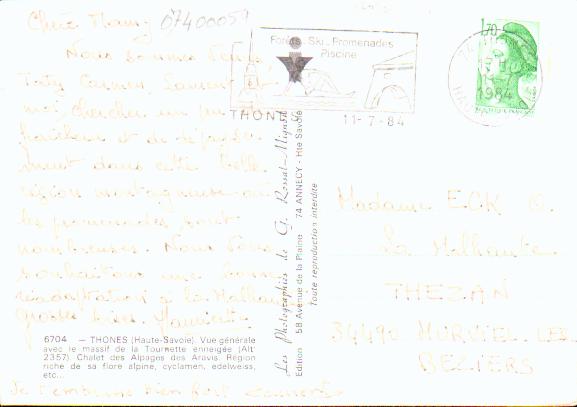 Chère Mamy 07400059
Nous sommes venus
Taty Carmen, Laurent et
moi, chercher un peu de
fraîcheur et de dépayse-
ment dans cette belle
région montagneuse où
les promenades sont
nombreuses. Nous vous
souhaitons une bonne
réadaptation à la Malhaute
grosses bises
Je t'embrasse bien fort
6704 - THONES (Haute-Savoie). Vue générale
avec le massif de la Tournette enneigée (Alt
2357) Chalet des Alpages des Aravis. Région
riche de sa flore alpine, cyclamen, edelweiss,
etc...
Les Photographies de G. Rossat-Mignot
Edition 5B Avenue de la Plaine 74 ANNECY - Hte Savoie
Toute reproduction interdite
Forêts Ski Promenades
Piscine
THONES
11-7-84
1,70
1984
Madame ECK O.
La Malhaute
THEZAN
34490 MURVIEL LES
BEZIERS